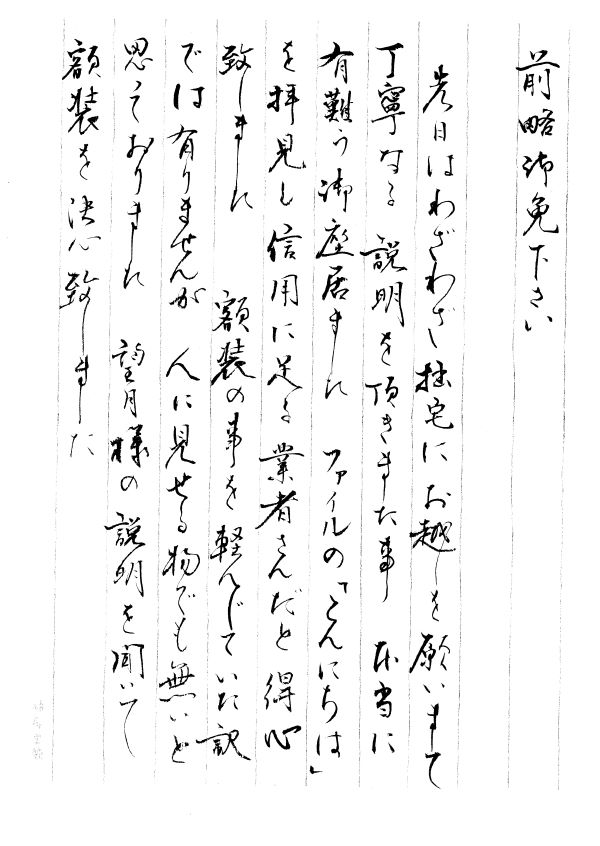 前略御免下さい
先日はわざわざ拙宅にお越しを願いまして
丁寧なる説明を頂きました事 本当に
有難う御座居ました ファイルの「こんにちは」
を拝見し信用に足る業者さんだと得心
致しました 額装の事を軽んじていた訳
では有りませんが 人に見せる物でも無いと
思っておりました 望月様の説明を聞いて
額装を決心致しました